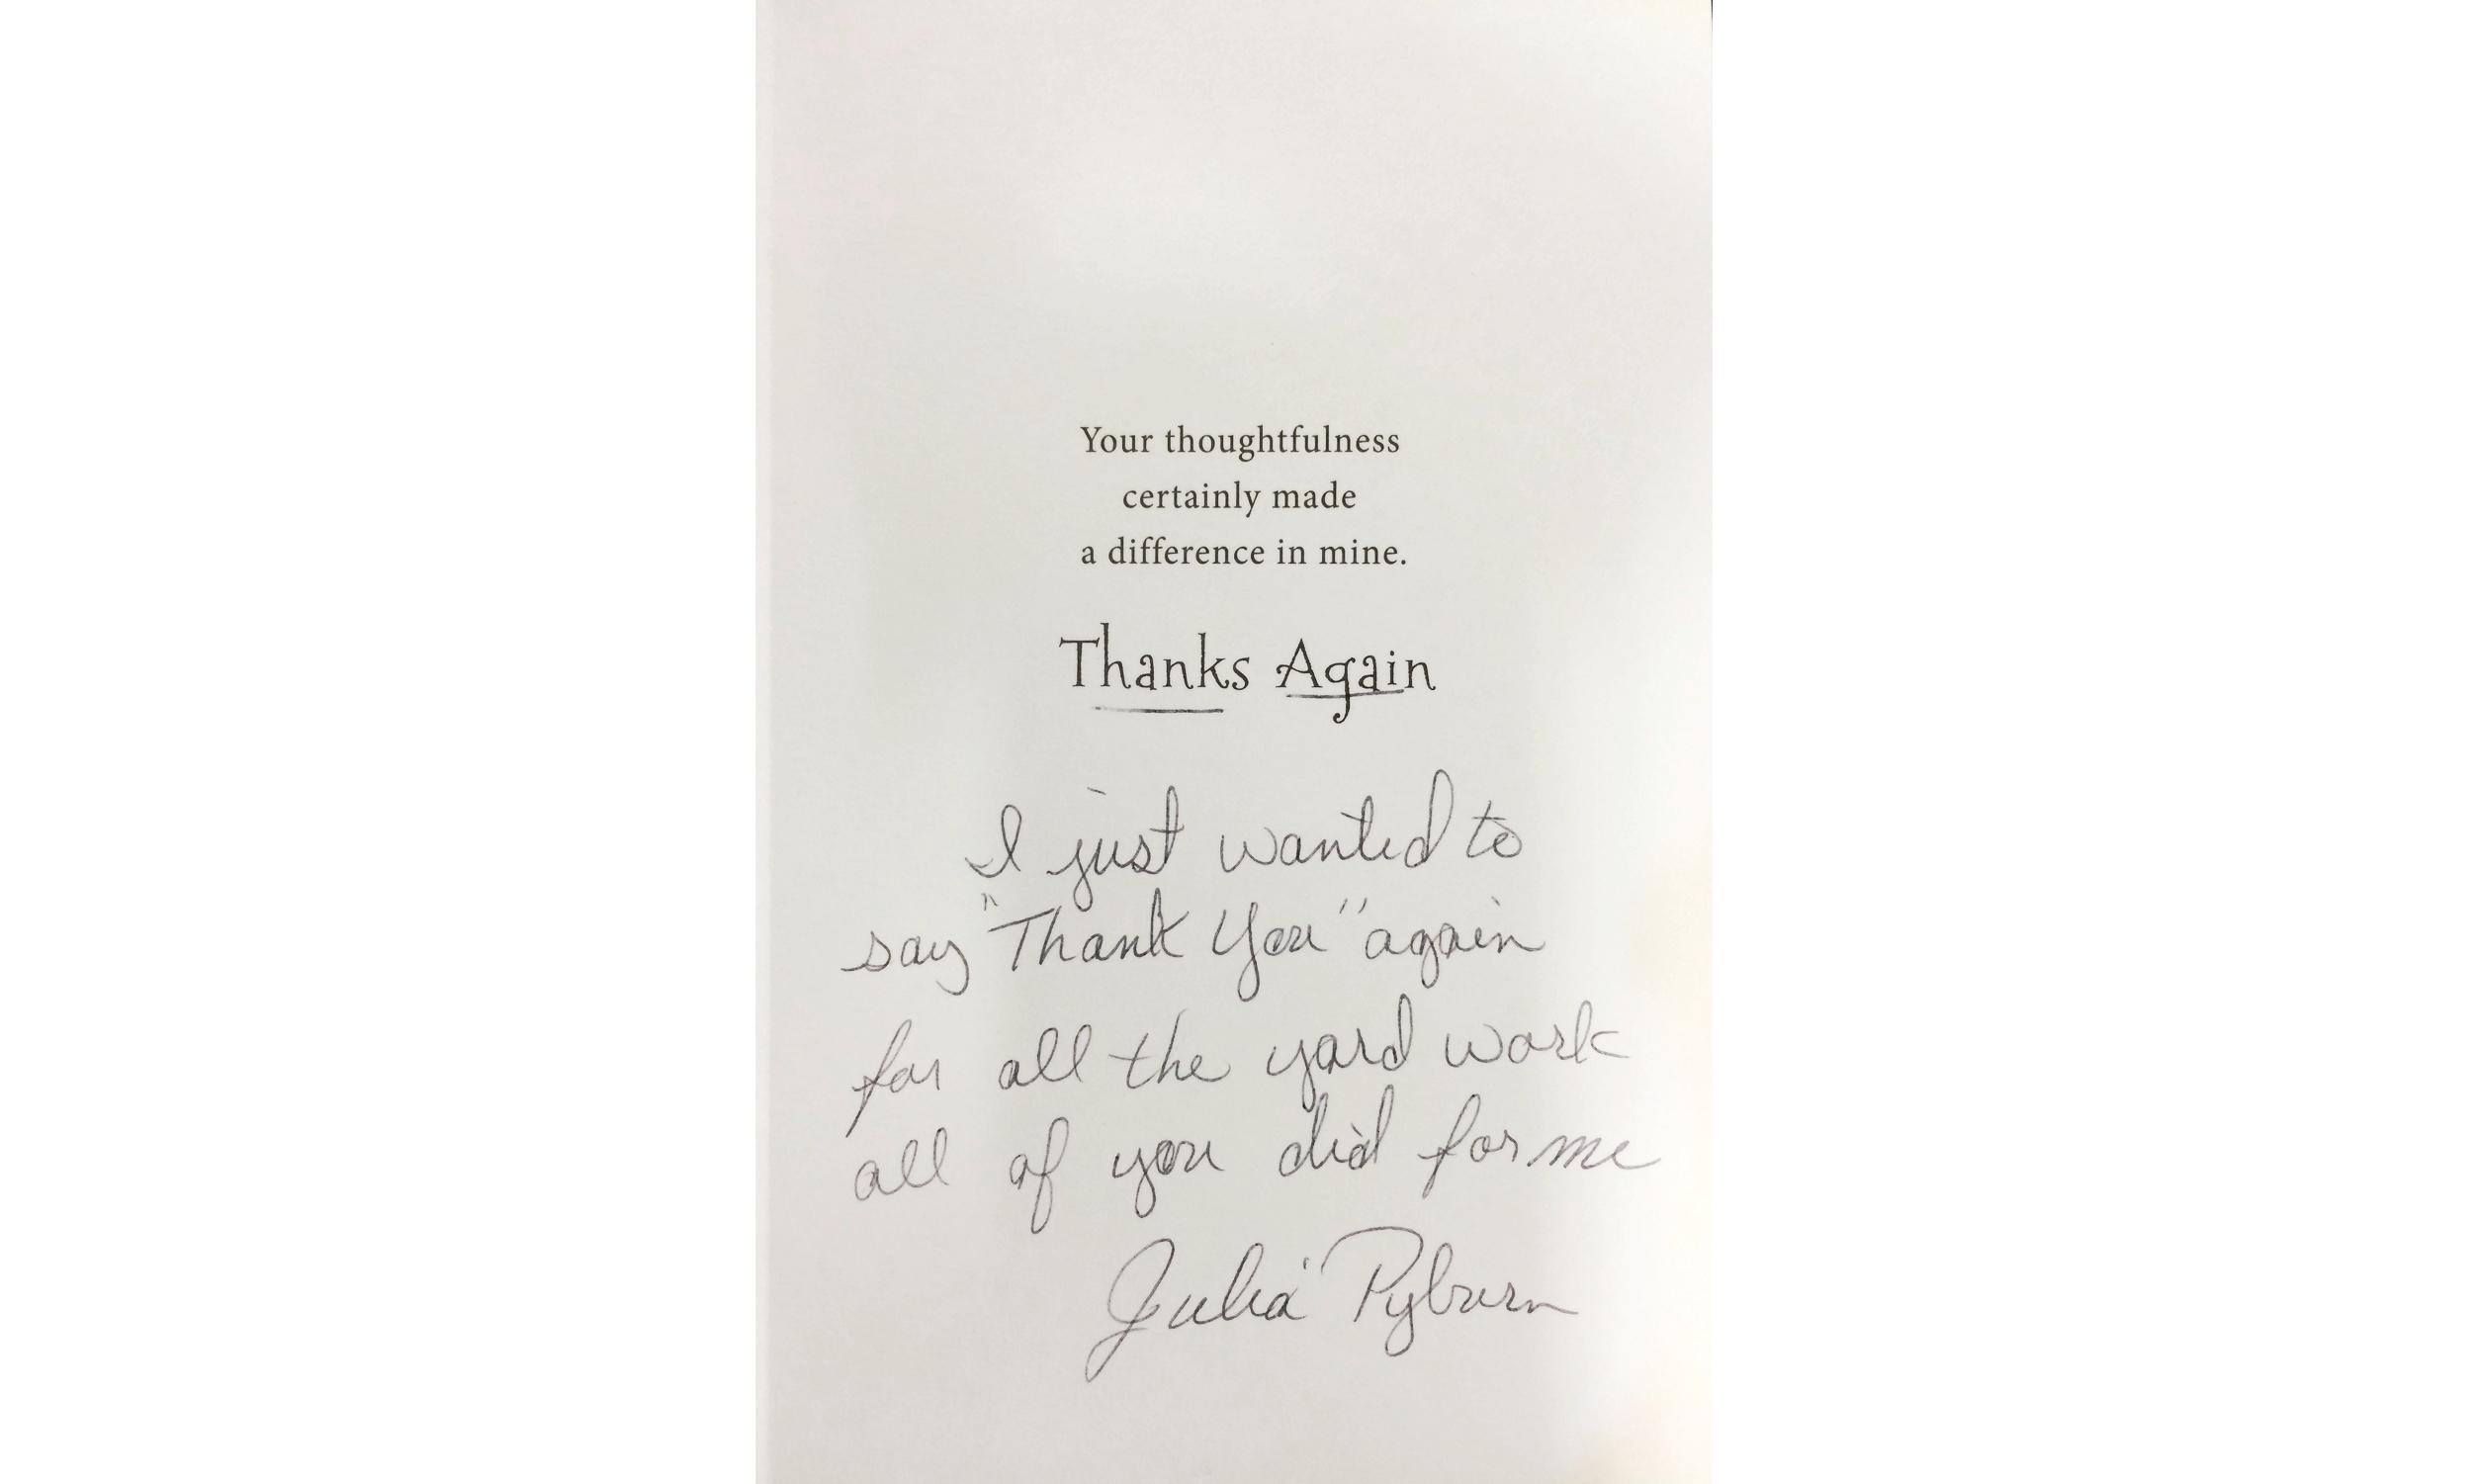 Your thoughtfulness
certainly made
a difference in mine.
Thanks Again
I just wanted to
say "Thank You" again
for all the yard work
all of you did for me
Julia Pyburn